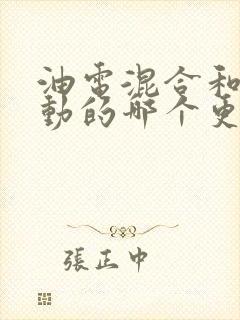 油電混合和
動的哪个更
張正中